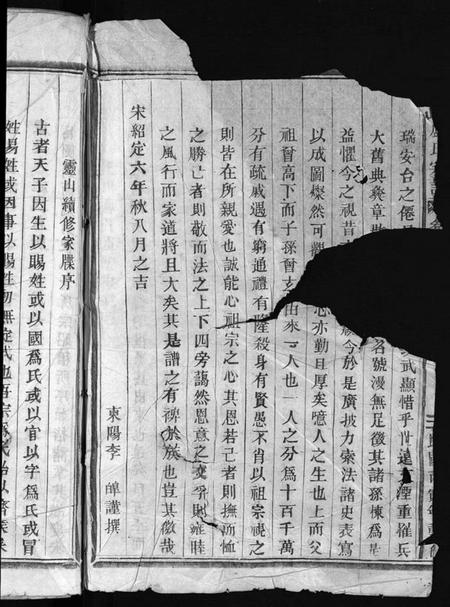 瑞安台之僊
武顯惜乎世遠
湮重罹兵
大舊典彝章散
名號漫無足徵其諸孫棟爲
益懼今之視昔
今於是廣披力索法諸史表寫
以成圖燦然可觀
心亦勤且厚矣噫人之生也上而父
祖曾高下而子孫曾
由來一人也一人之分爲十百千萬
分有疏戚遇有窮通禮有隆殺身有賢愚不肖以祖宗視之
則皆在所親愛也誠能心祖宗之心其恩若己者則撫而恤
之勝己者則敬而法之上下四旁藹然恩意之交孚則雍睦
之風行而家道將且大矣其是譜之有裨於族也豈其微哉
宋紹定六年秋八月之吉
東陽李
謹撰
靈山續修家牒序
古者天子因生以賜姓或以國爲氏或以官以字爲氏或冒
姓易姓或因事以賜姓初無定式也吾宗